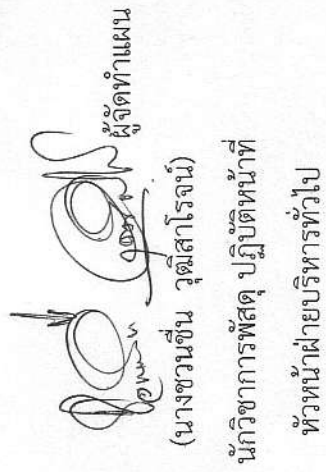 ผู้จัดทำแผน
(นางชวนชื่น วุฒิสาโรจน์)
นักวิชาการพัสดุ ปฏิบัติหน้าที่
หัวหน้าฝ่ายบริหารทั่วไป